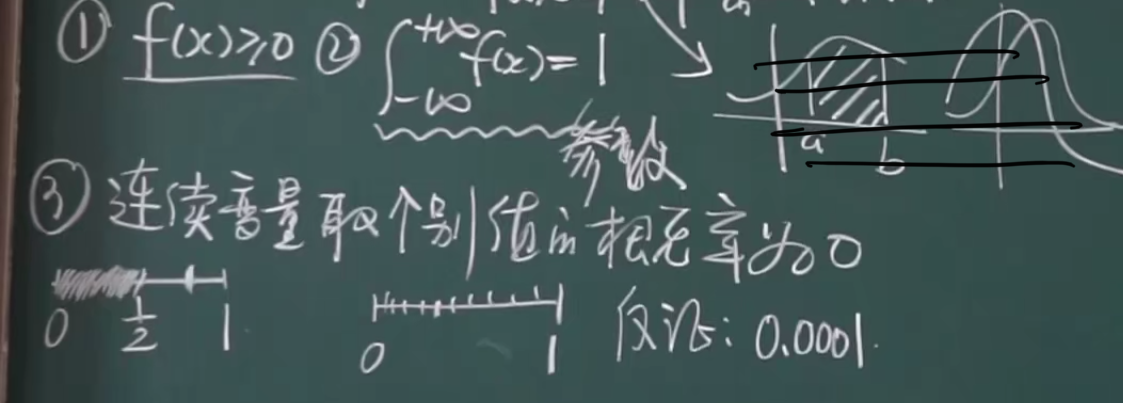 ① f(x)≥0 ② ∫_{-∞}^{+∞} f(x)=1
参数
a b
③ 连续变量取个别值的概率为0
0 1/2 1
0 1 反证: 0.0001.